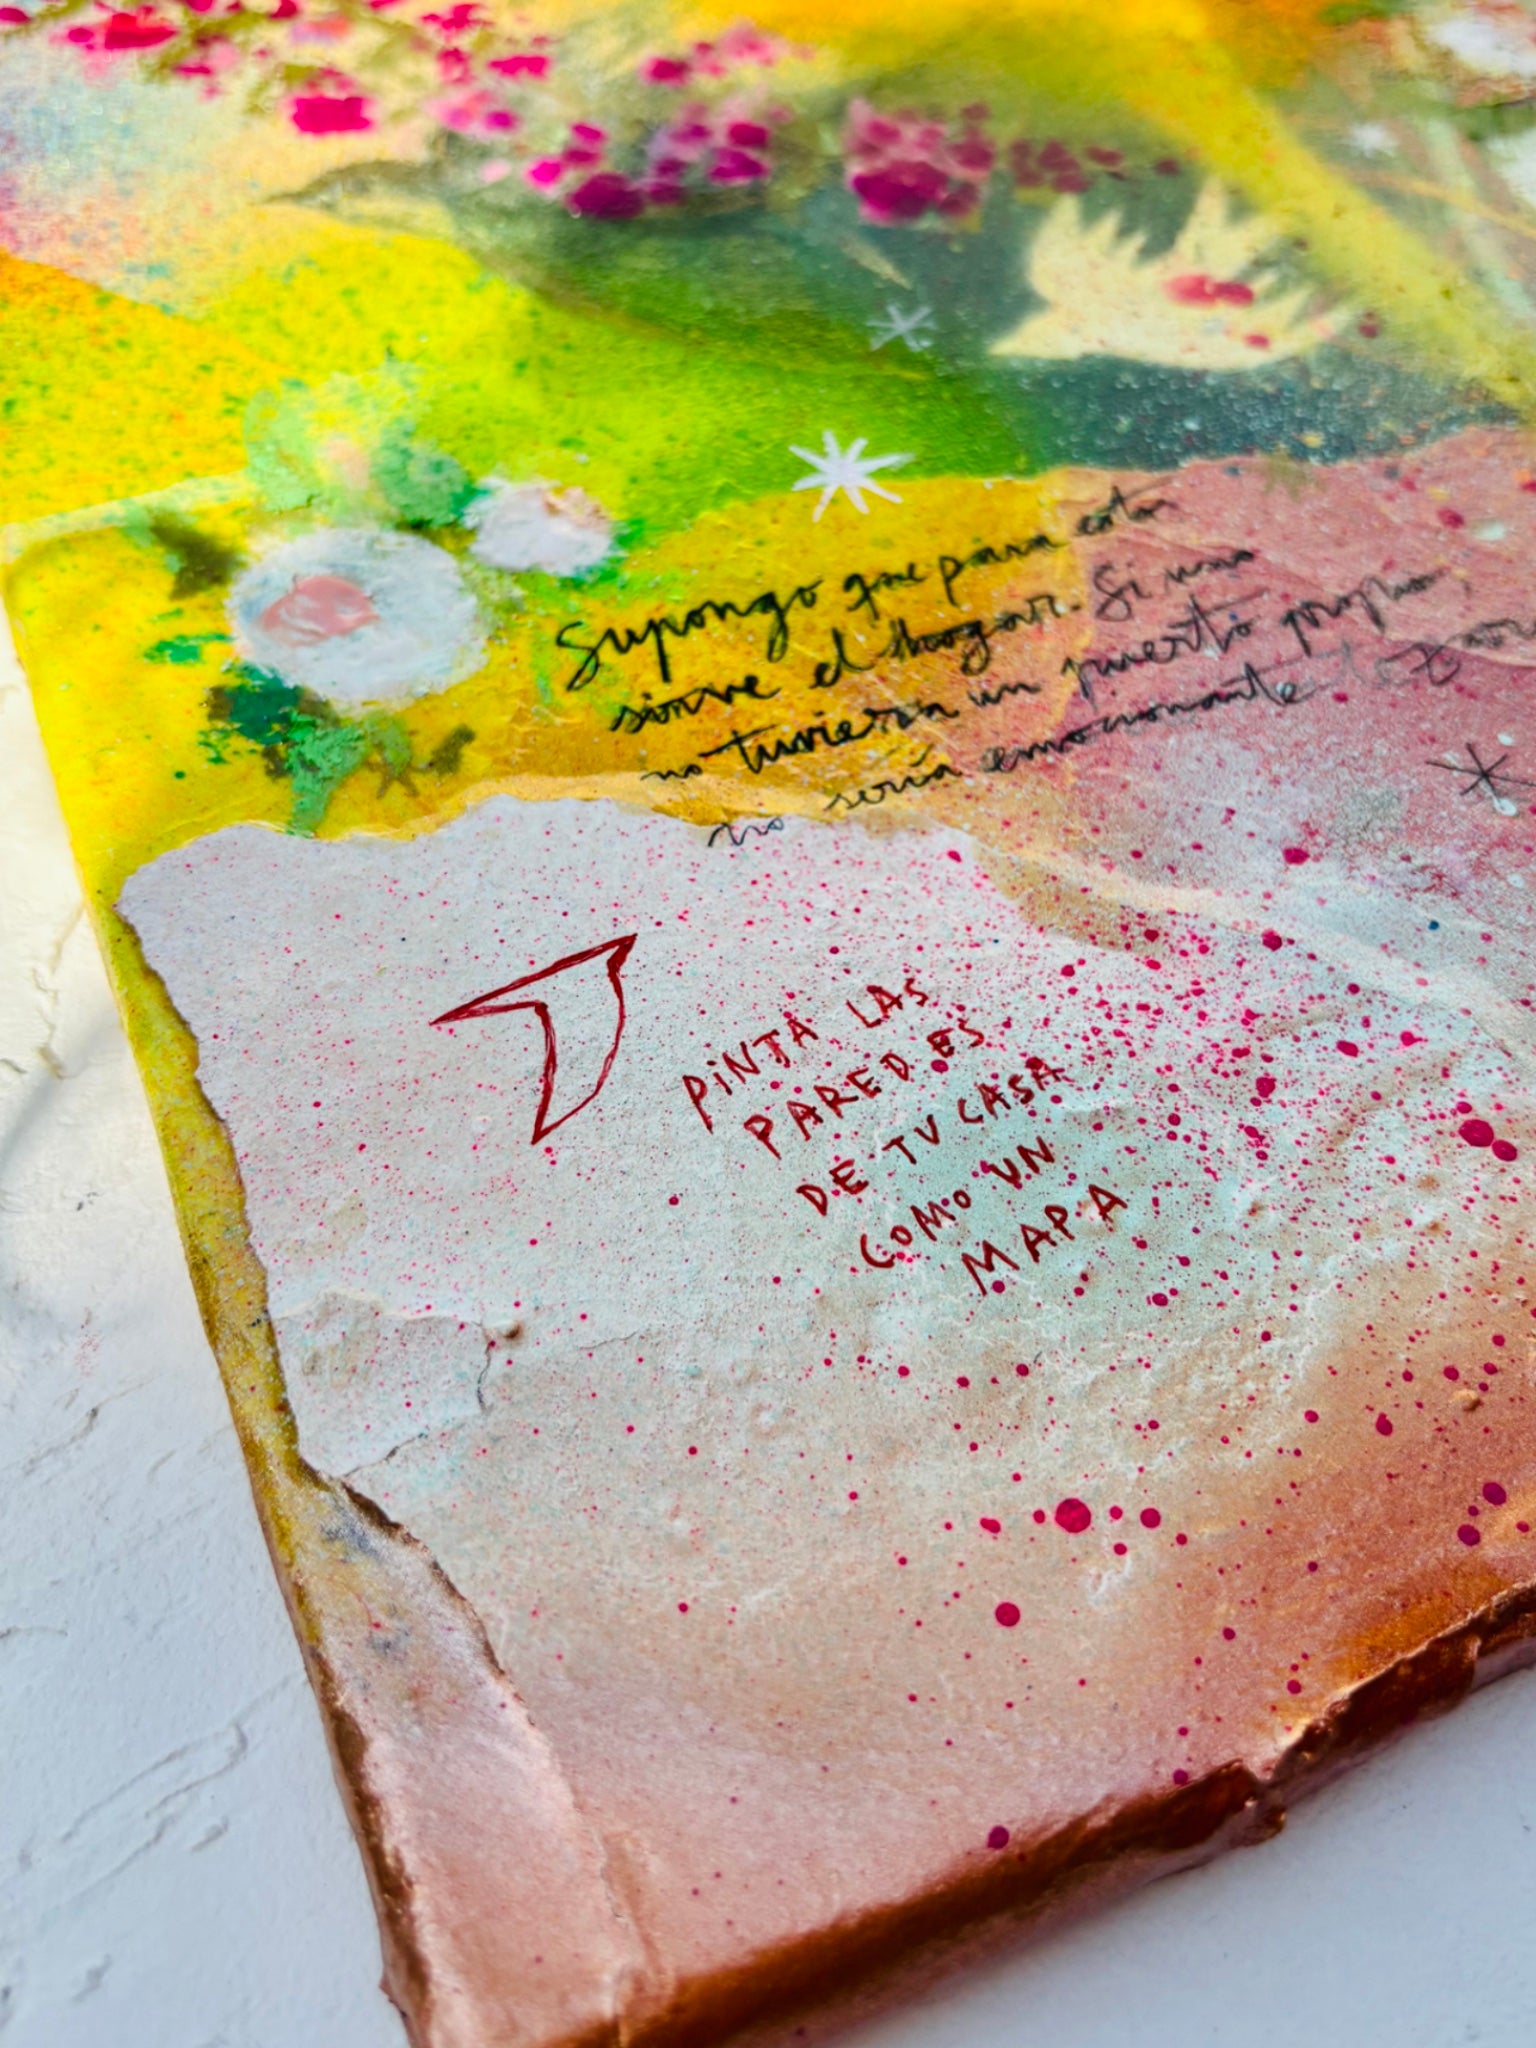 Supongo que para esto
sirve el hogar. Si uno
no tuviera un puerto propio,
no sería emocionante
PiNTA LAs
PARED ES
DE TU CASA
COMO UN
MAPA